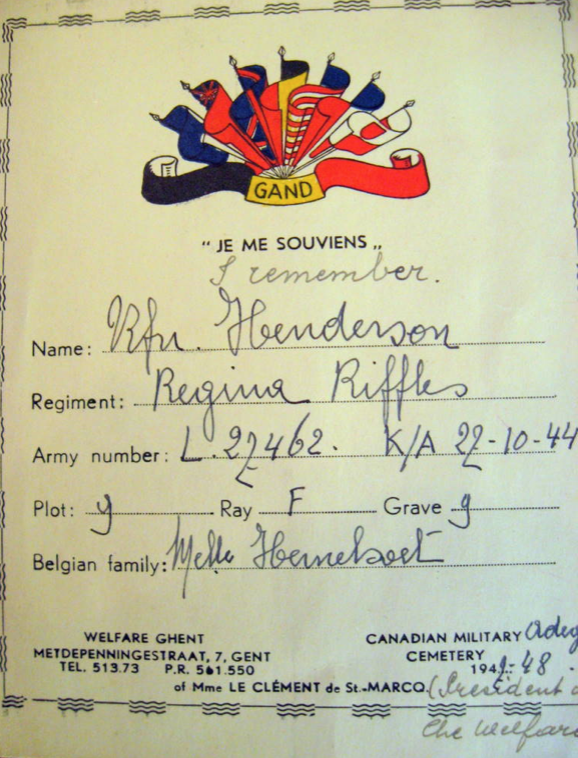 GAND
" JE ME SOUVIENS „
I remember.
Name: Rfn. Henderson
Regiment: Regina Riffles
Army number: L.27462. K/A 22-10-44
Plot: Ray F Grave
Belgian family: Melle
WELFARE GHENT
METDEPENNINGESTRAAT, 7, GENT
TEL. 513.73 P.R. 561.550
CANADIAN MILITARY
CEMETERY
of Mme LE CLÉMENT de St.-MARCQ (President
The Welfare